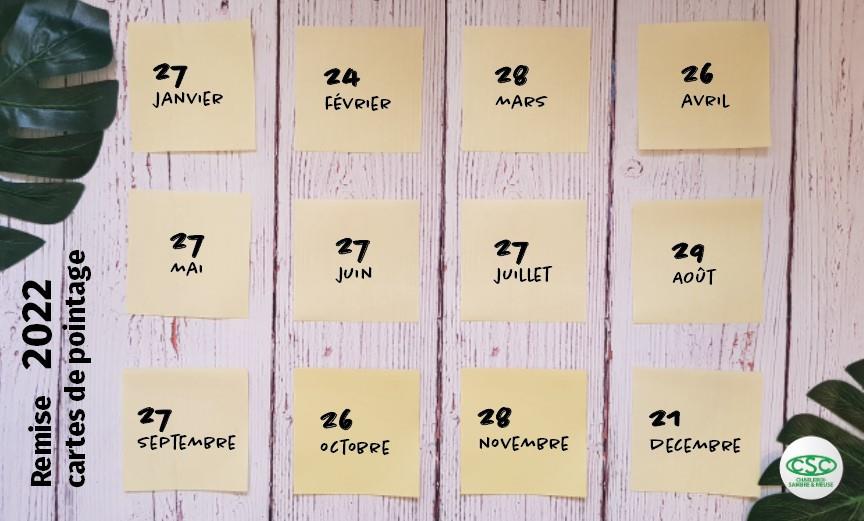 27
JANVIER
24
FÉVRIER
28
MARS
26
AVRIL
27
MAI
27
JUIN
27
JUILLET
29
AOÛT
27
SEPTEMBRE
26
OCTOBRE
28
NOVEMBRE
21
DECEMBRE
Remise 2022
cartes de pointage
CSC
CHARLEROI-
SAMBRE & MEUSE